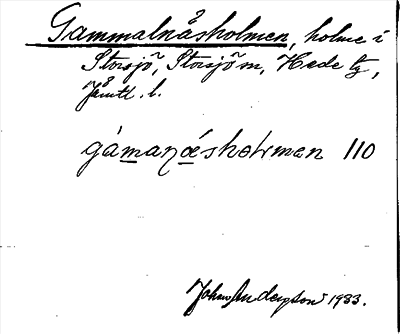 Gammalnåsholmen, holme i
Storsjö, Storsjö sn, Hede tg,
Jämtl. l.
gámaŋǿsholmen 110
John Anderzon 1933.